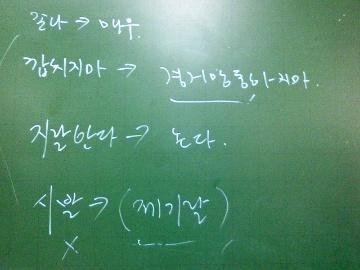 졸라 → 매우.
깝치지마 → 경거망동하지마.
지랄한다 → 논다.
시발 → (제기랄)
×